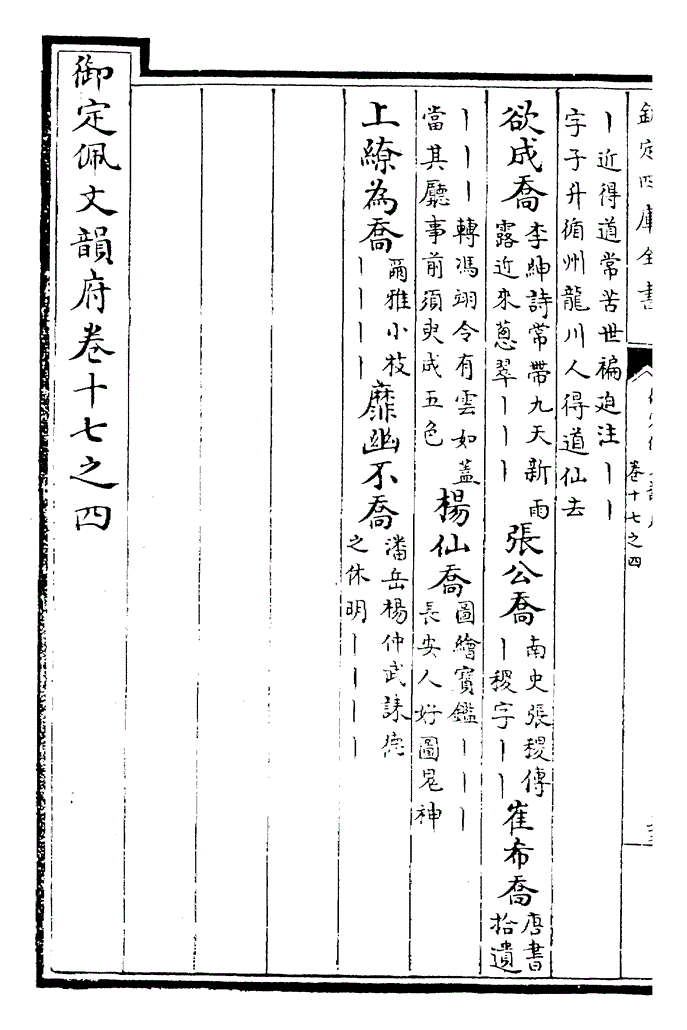 欽定四庫全書
卷十七之四
丨近得道常苦世褊迫注丨丨
字子升循州龍川人得道仙去
欲成喬
李紳詩常帶九天新雨
露近來蔥翠丨丨丨
張公喬
南史張稷傳
丨稷字丨丨
崔希喬
唐書
拾遺
丨丨丨轉馮翊令有雲如蓋
當其廳事前須臾成五色
楊仙喬
圖繪寶鑑丨丨丨
長安人好圖鬼神
上繚為喬
爾雅小枝
丨丨丨丨
靡幽不喬
潘岳楊仲武誄德
之休明丨丨丨丨
御定佩文韻府卷十七之四